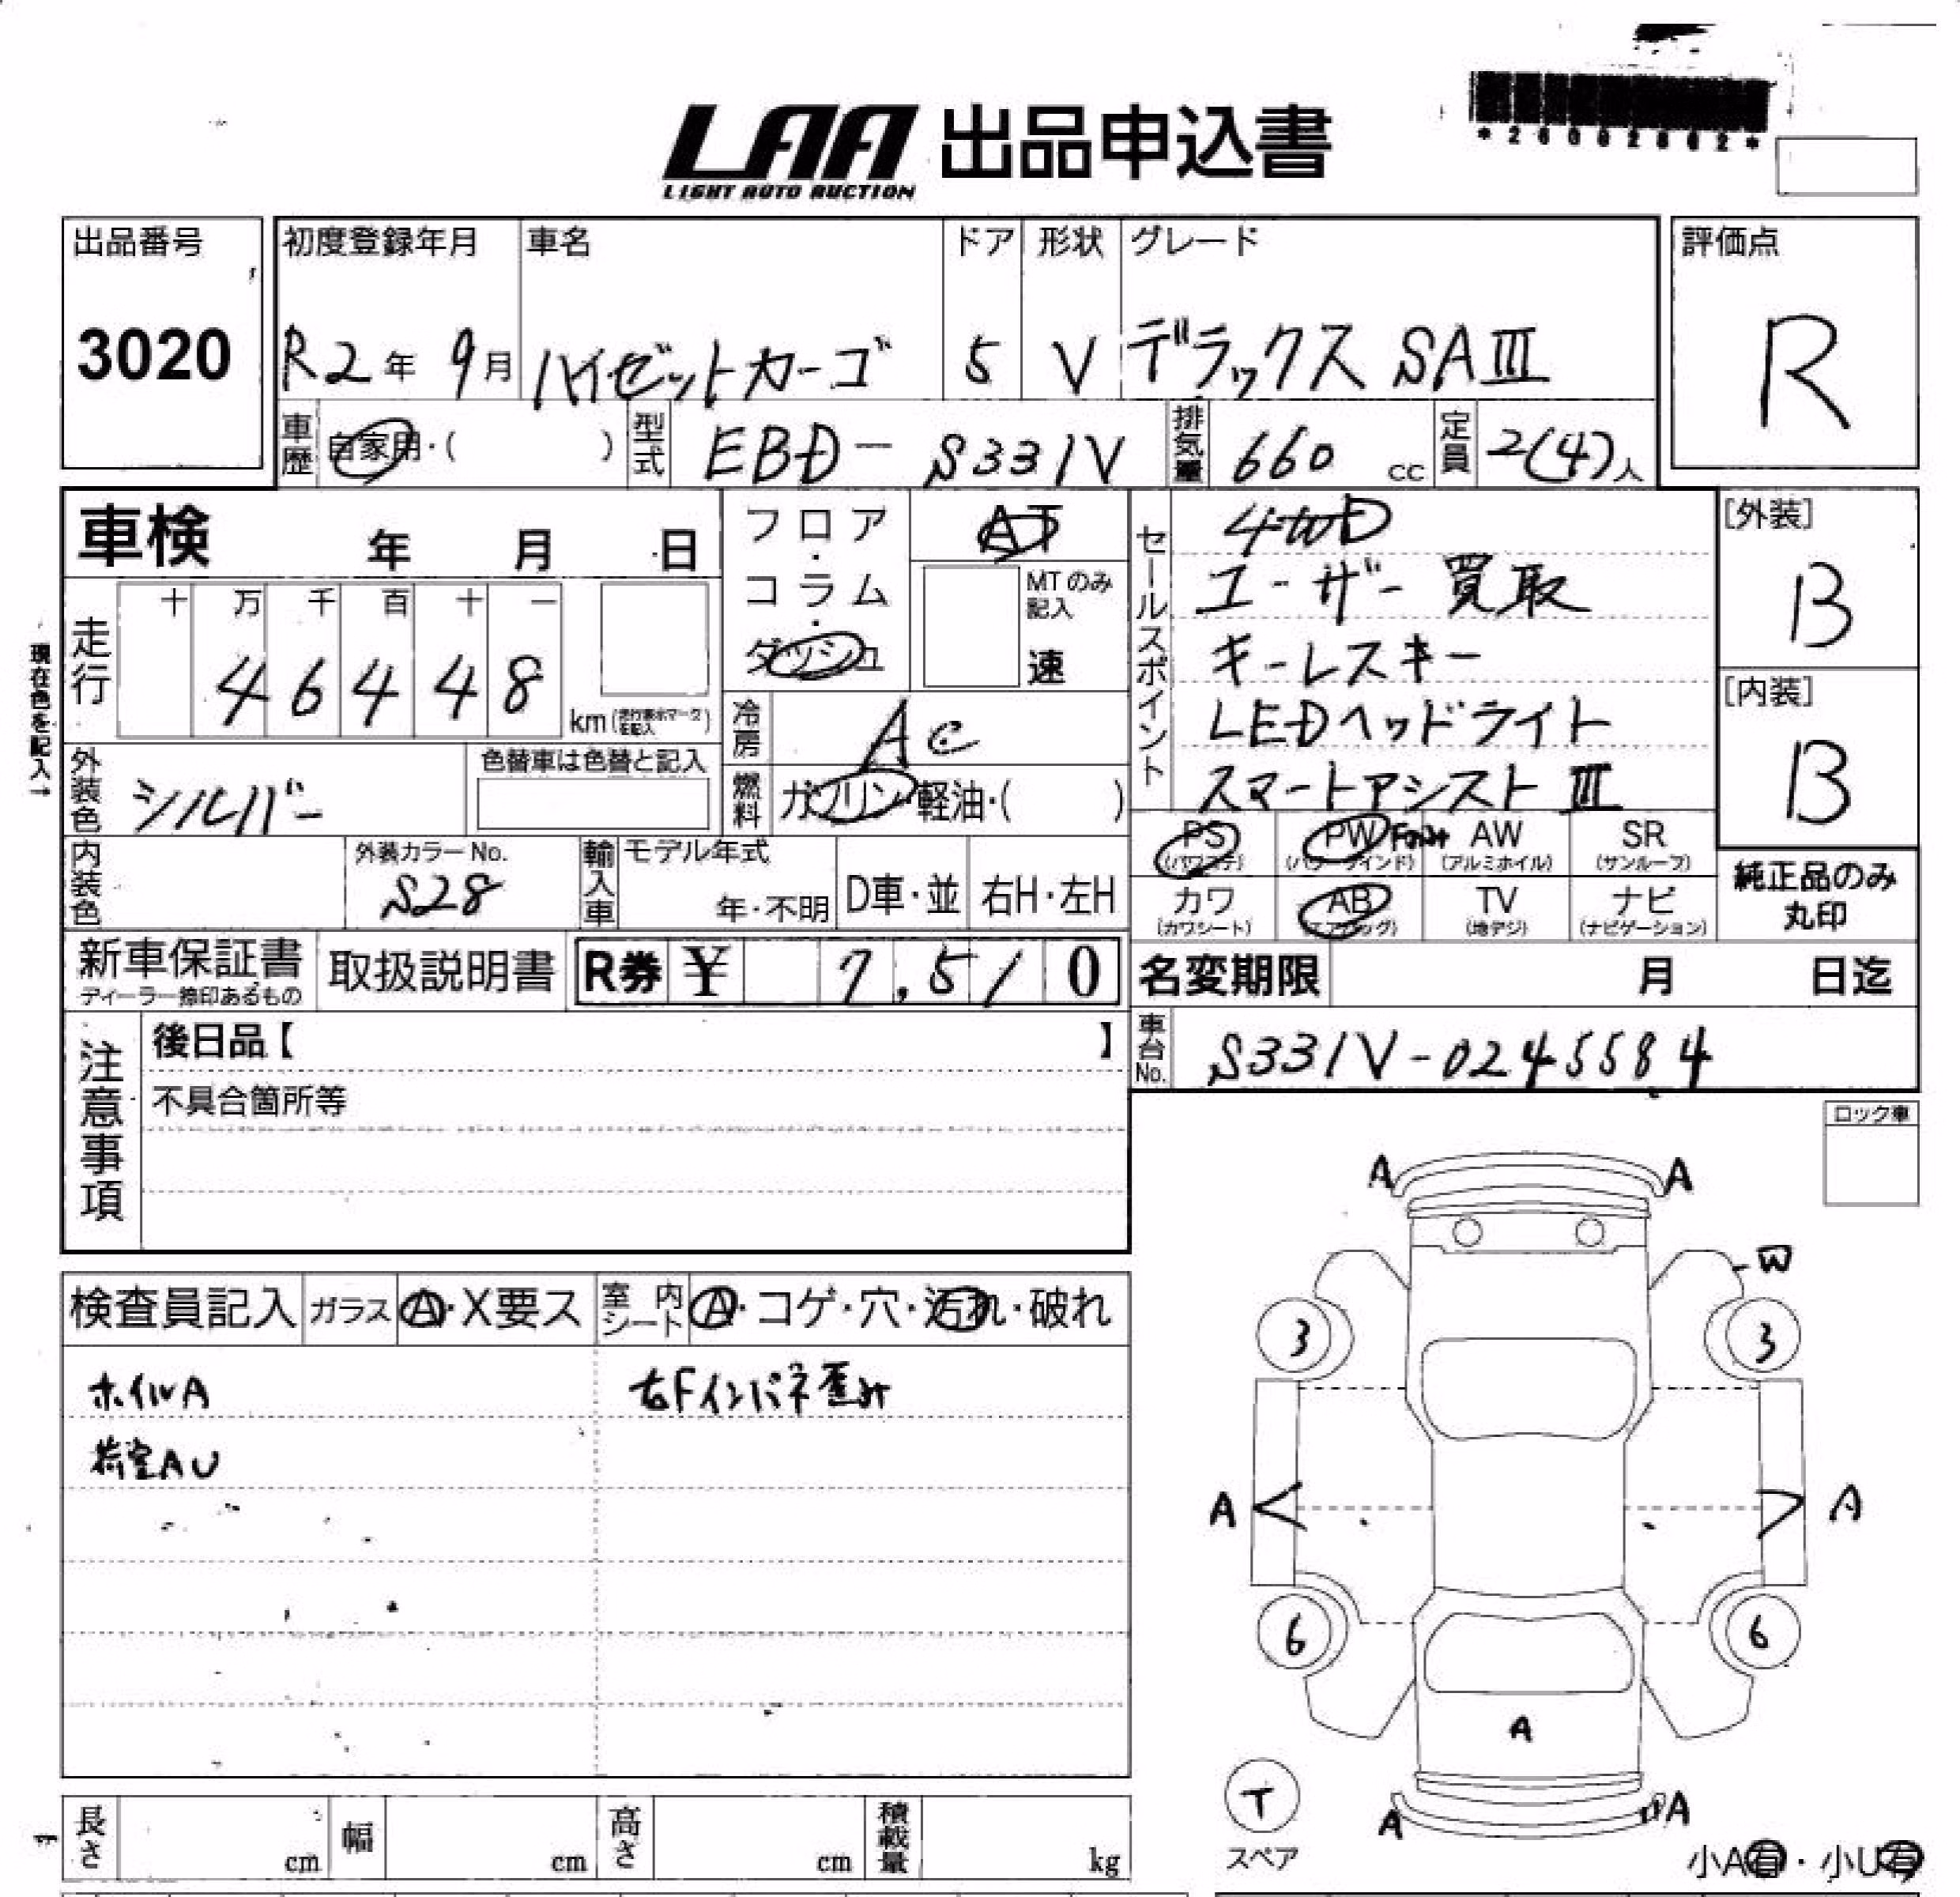 *26002802*
LAA 出品申込書
LIGHT AUTO AUCTION
出品番号
3020
初度登録年月
R2年 9月
車名
ハイゼットカーゴ
ドア
5
形状
V
グレード
デラックス SAⅢ
評価点
R
車歴
自家用・( )
型式
EBD-S331V
排気量
660 cc
定員
2(4)人
車検 年 月 日
フロア・コラム・ダッシュ
AT
MTのみ記入
速
セールスポイント
4WD
ユーザー買取
キーレスキー
LEDヘッドライト
スマートアシストⅢ
[外装]
B
[内装]
B
現在色を記入→
走行
十 万 千 百 十 一
4 6 4 4 8
km (走行表示マークを記入)
冷房
AC
外装色
シルバー
色替車は色替と記入
燃料
ガソリン・軽油・( )
PS (パワステ)
PW (パワーウインド) Front
AW (アルミホイル)
SR (サンルーフ)
内装色
外装カラーNo.
S28
輸入車
モデル年式
年・不明
D車・並
右H・左H
カワ (カワシート)
AB (エアバッグ)
TV (地デジ)
ナビ (ナビゲーション)
純正品のみ
丸印
新車保証書
ディーラー捺印あるもの
取扱説明書
R券 ¥ 7,510
名変期限 月 日迄
車台No.
S331V-0245584
注意事項
後日品【 】
不具合箇所等
ロック車
検査員記入
ガラス
A・X要ス
室内シート
A・コゲ・穴・汚れ・破れ
ホイルA
右Fインパネ歪み
荷室AU
A
A
W
3
3
A
A
6
6
A
T
スペア
A
A
小A有・小U有
長さ cm
幅 cm
高さ cm
積載量 kg